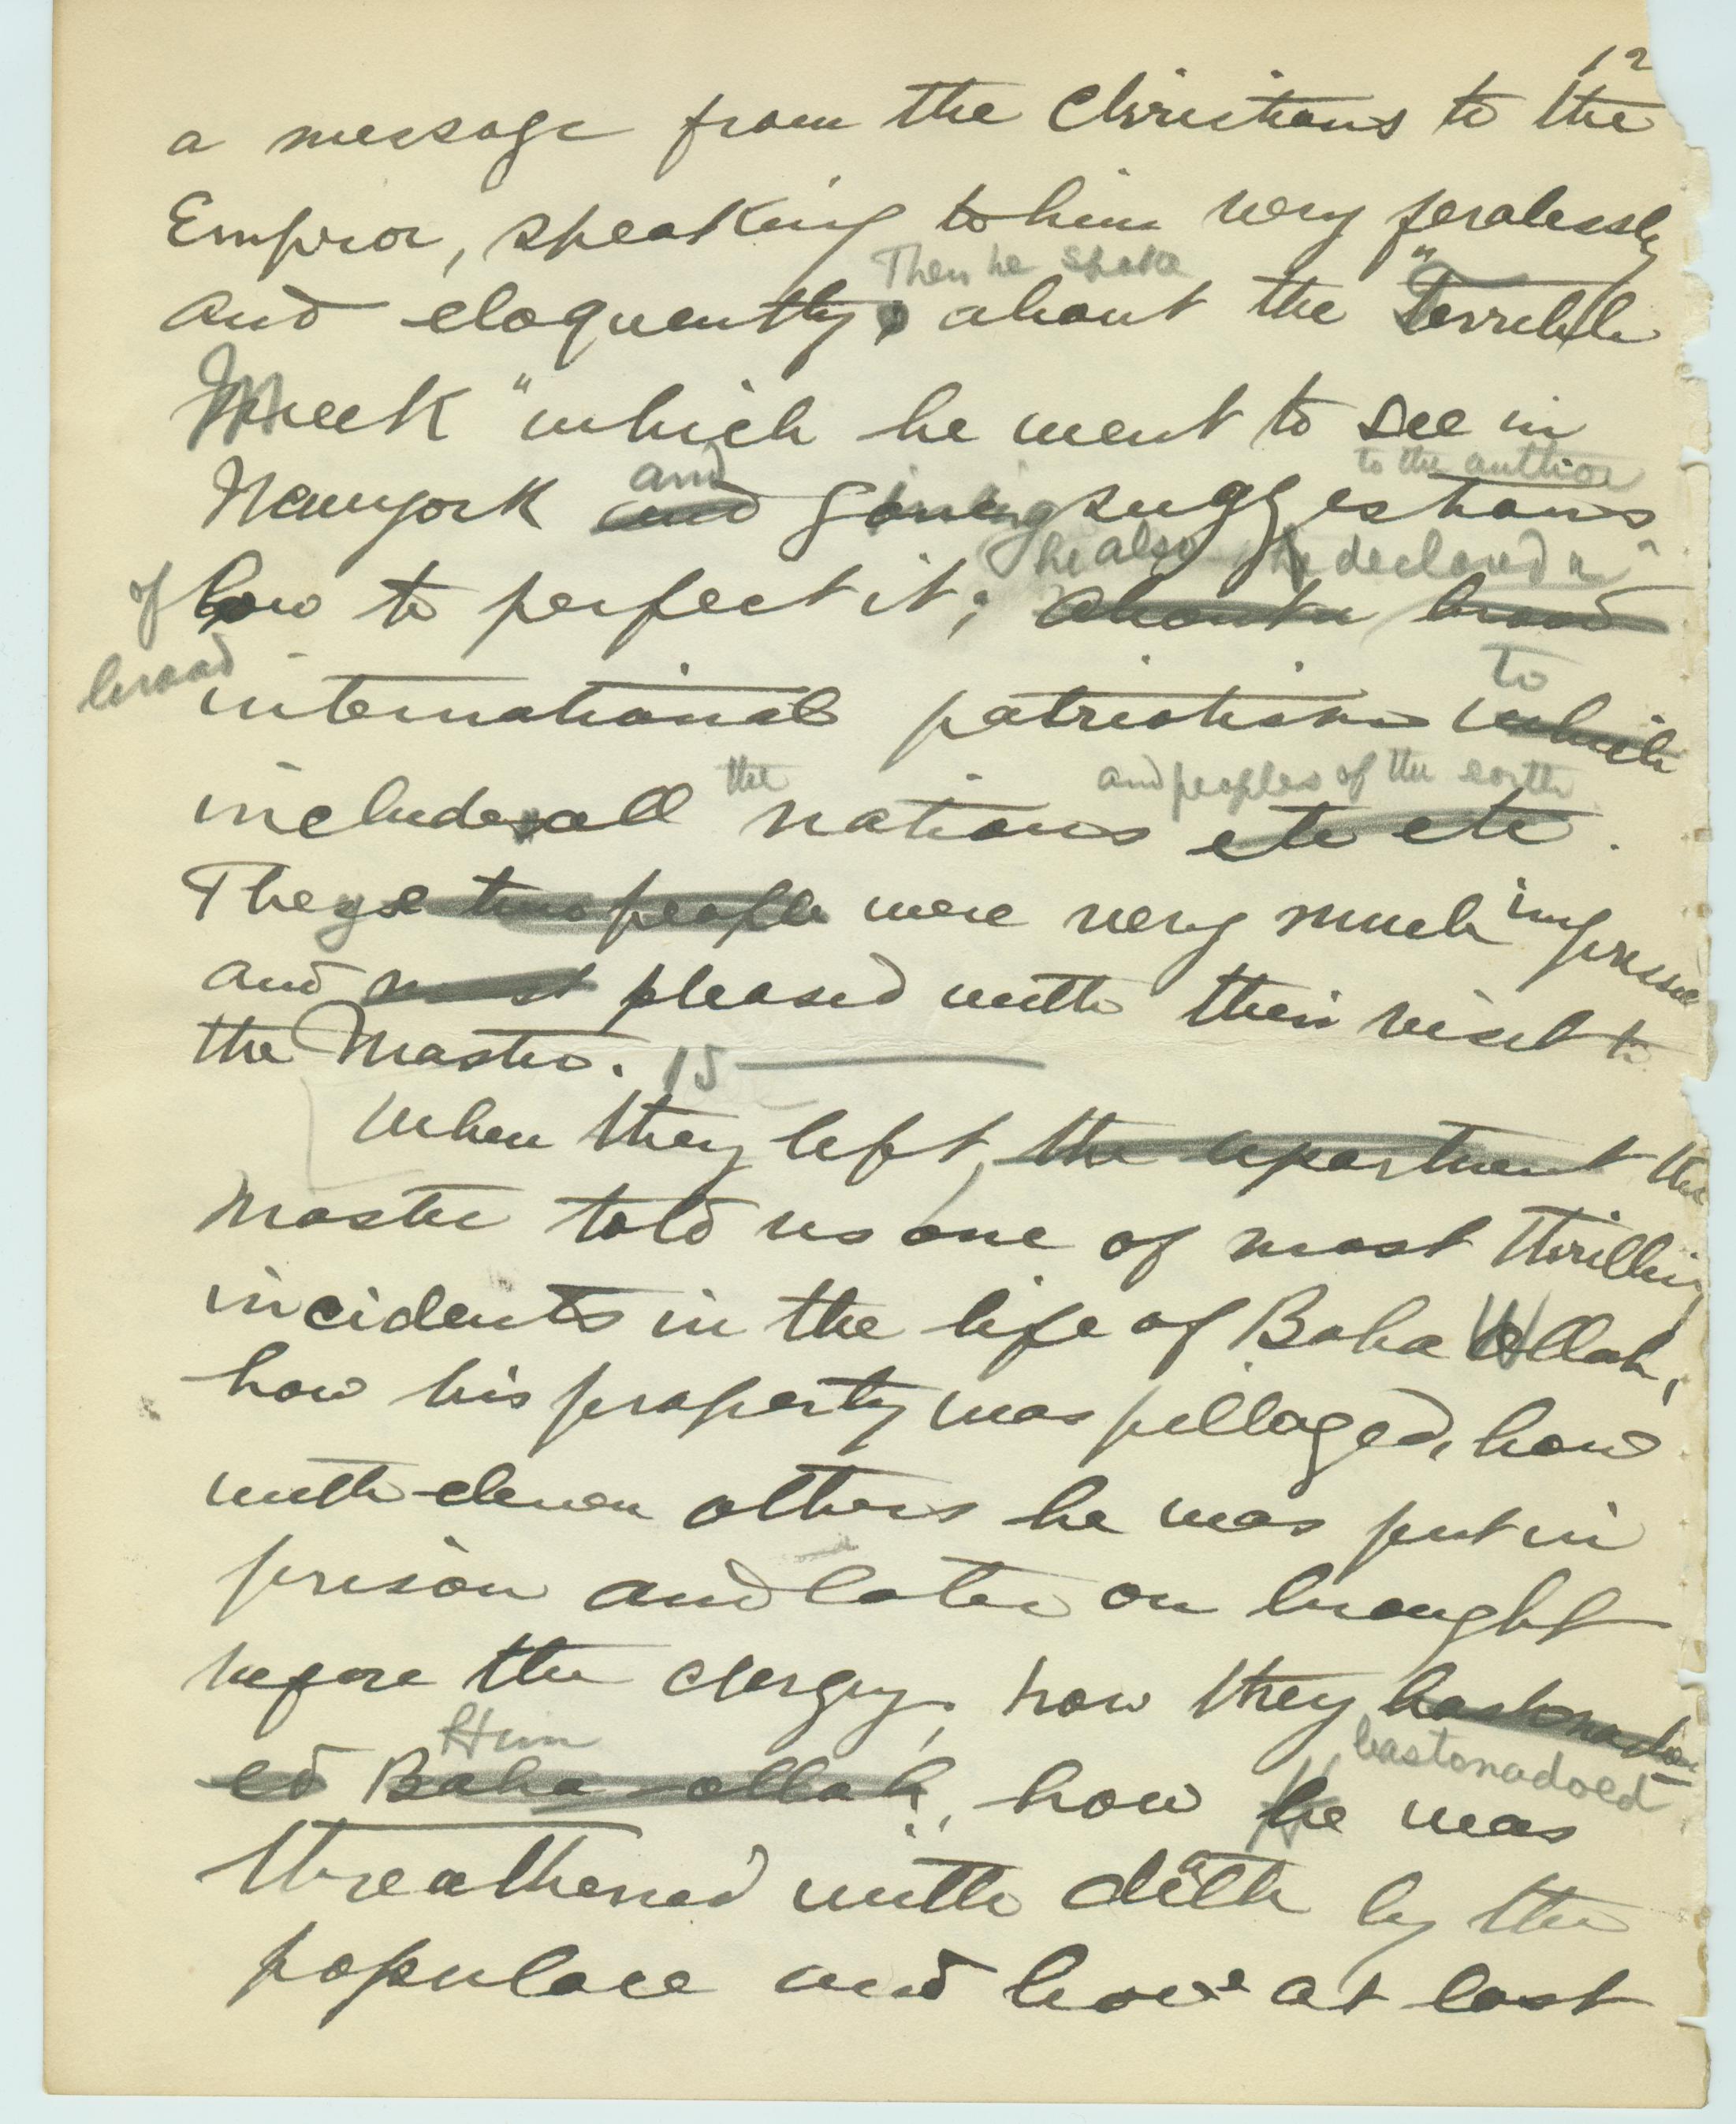 12
a message from the Christians to the
Empror, speaking to him very feralessly
Then he spoke
and eloquently, about the "Terrible
Meek" which he went to see in
and to the author
Newyork and giving suggestions
he also he declared a
of how to perfect it; about a broad
broad to
international patriotism which
the and peoples of the earth
includes all nations etc etc.
These two people were very much impressed
and most pleased with their visit to
the Master. 15
When they left, the apartment the
Master told us one of most thrilling
incidents in the life of Baha Ullah,
how his property was pillaged, how
with eleven others he was put in
prison and later on brought
before the clergy; how they bastonado
Him bastonadoed
ed Baha-ollah, how He was
threathened with death by the
populace and how at last